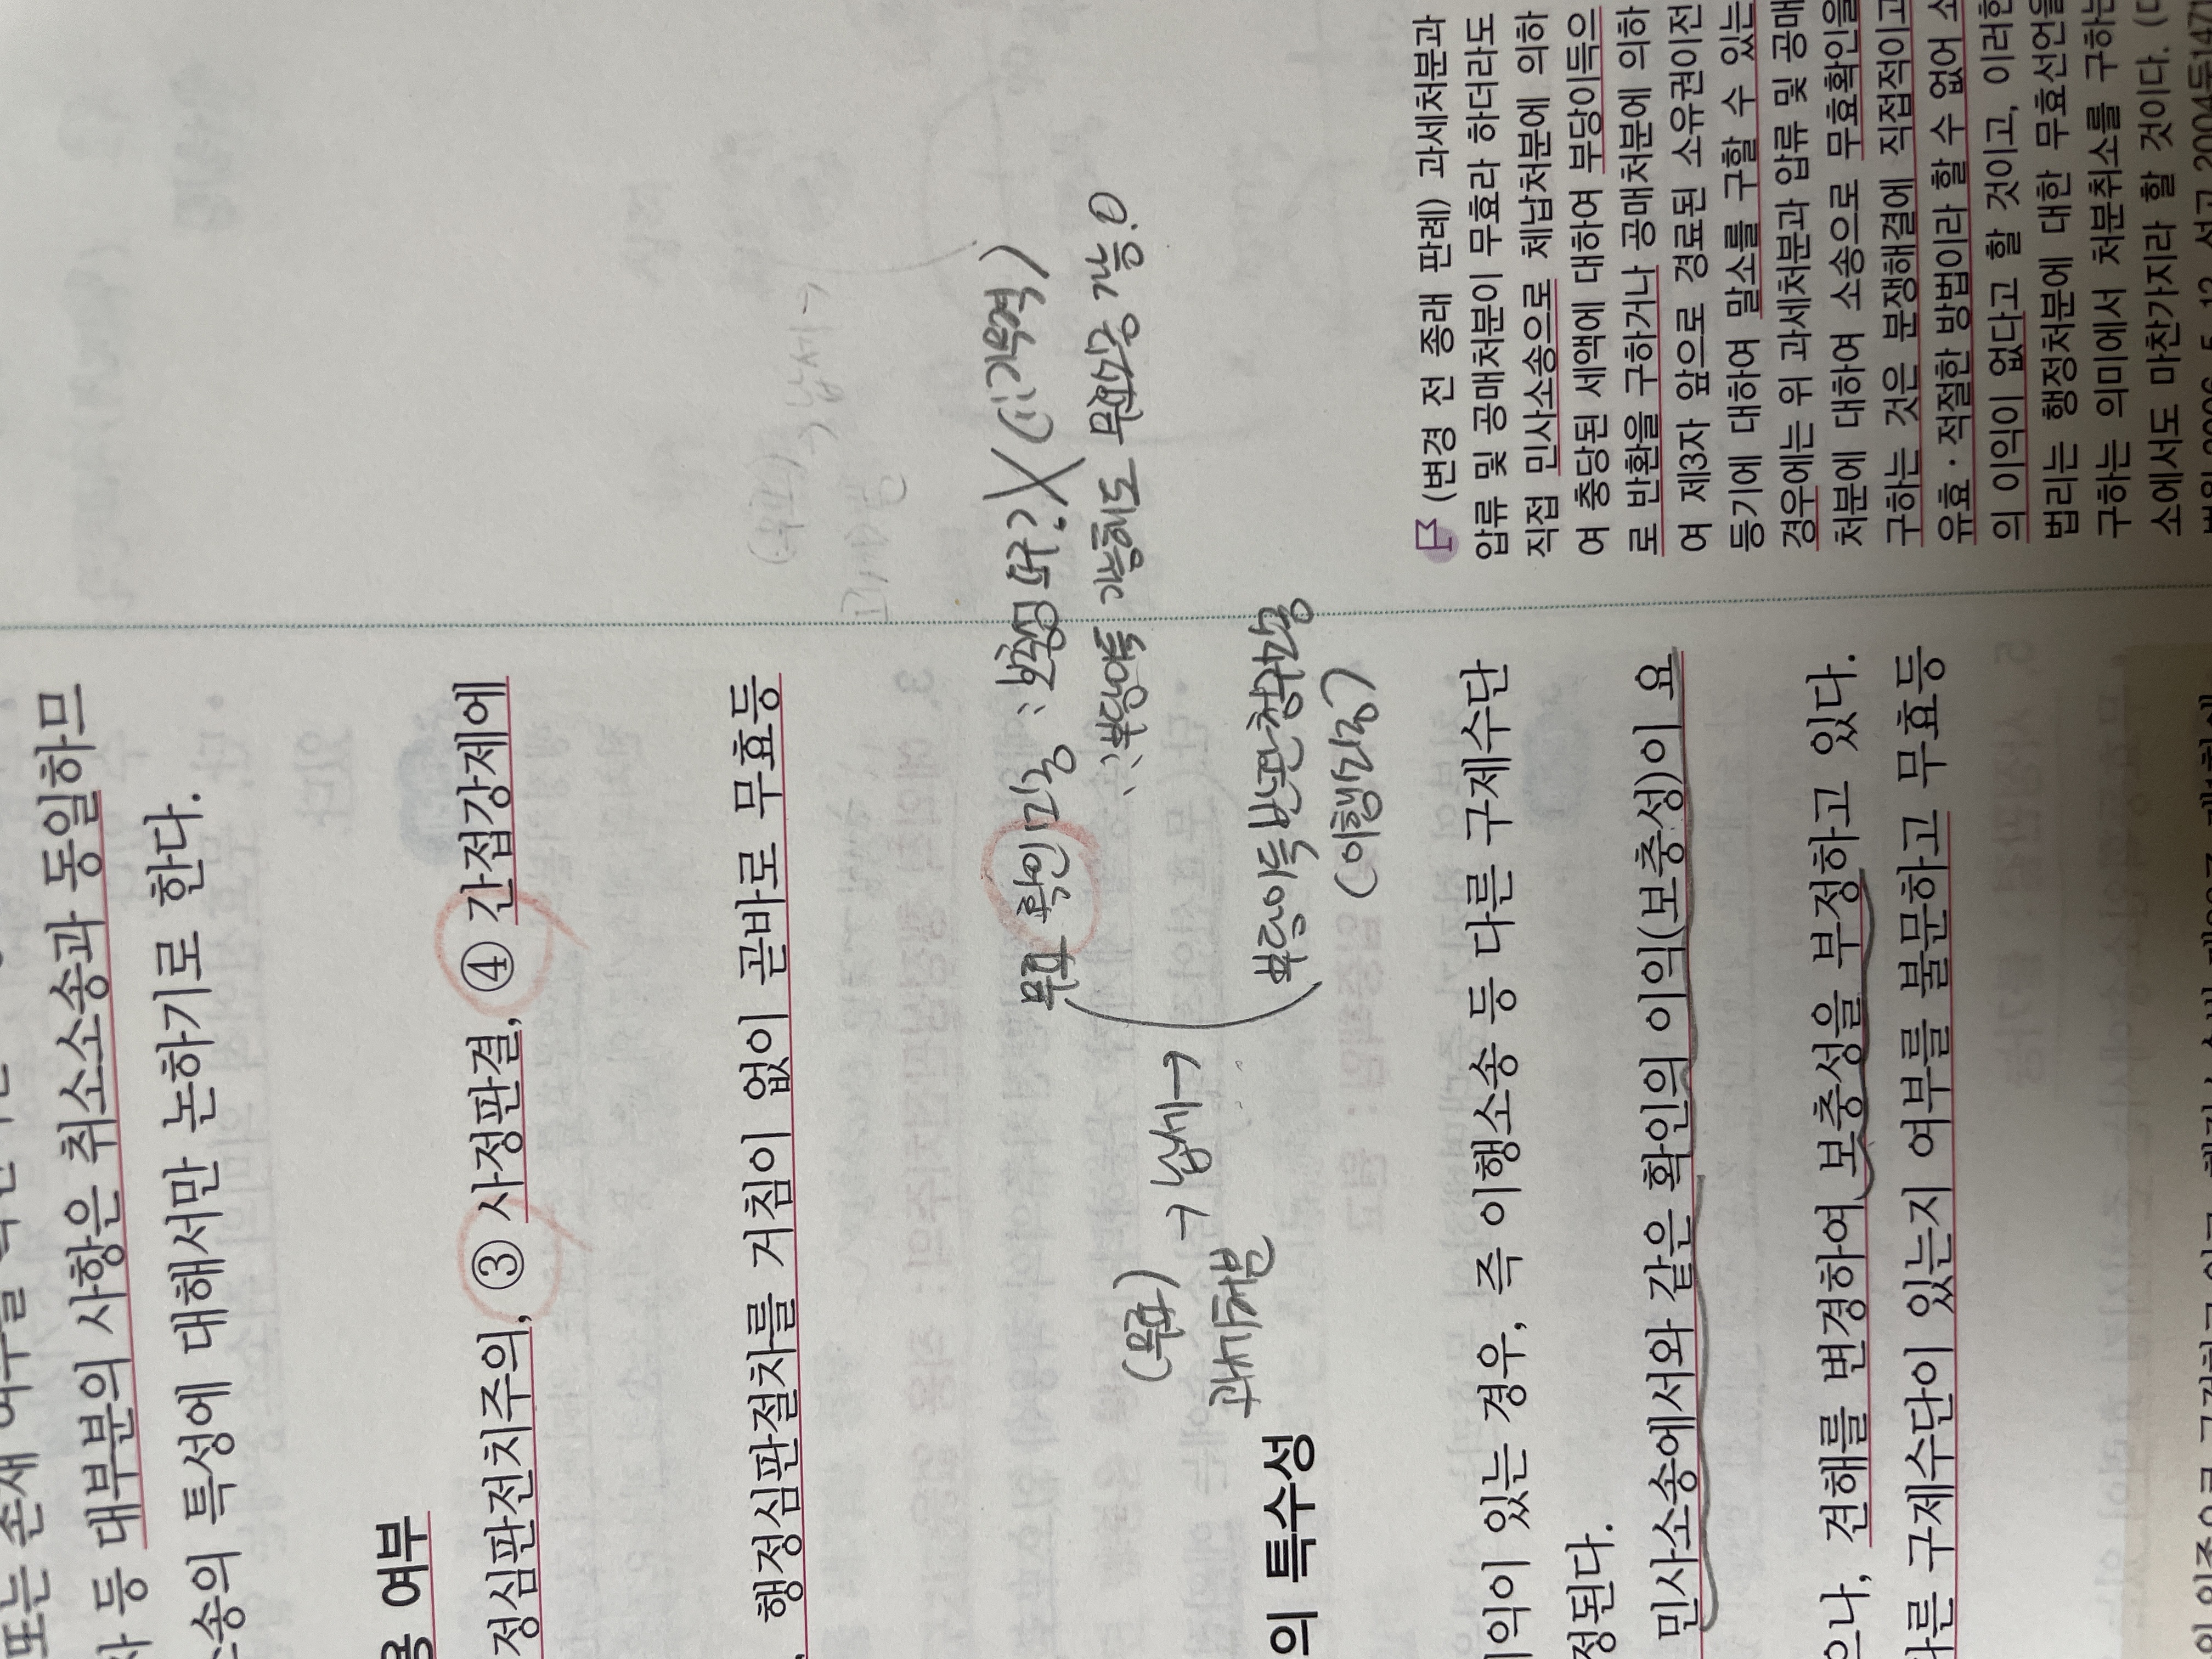 또는 존재 여부를
사 등 대부분의 사항은 취소소송과 동일하므
소송의 특성에 대해서만 논하기로 한다.
용 여부
정심판전치주의, ③ 사정판결, ④ 간접강제에
, 행정심판절차를 거침이 없이 곧바로 무효등
(무효)
과세처분 → 납세 →
무효확인소송 : 보충성 요구? X (∵ 기속력)
∵ 부당이득 가능해도 무효소송 가능.0
부당이득반환청구소송
(이행소송)
의 특수성
이익이 있는 경우, 즉 이행소송 등 다른 구제수단
정된다.
민사소송에서와 같은 확인의 이익(보충성)이 요
으나, 견해를 변경하여 보충성을 부정하고 있다.
다른 구제수단이 있는지 여부를 불문하고 무효등
(변경 전 종래 판례) 과세처분과
압류 및 공매처분이 무효라 하더라도
직접 민사소송으로 체납처분에 의하
여 충당된 세액에 대하여 부당이득으
로 반환을 구하거나 공매처분에 의하
여 제3자 앞으로 경료된 소유권이전
등기에 대하여 말소를 구할 수 있는
경우에는 위 과세처분과 압류 및 공매
처분에 대하여 소송으로 무효확인을
구하는 것은 분쟁해결에 직접적이고
유효·적절한 방법이라 할 수 없어 소
의 이익이 없다고 할 것이고, 이러한
법리는 행정처분에 대한 무효선언을
구하는 의미에서 처분취소를 구하는
소에서도 마찬가지라 할 것이다. (대
법원 2006. 5. 12. 선고 2004두1471